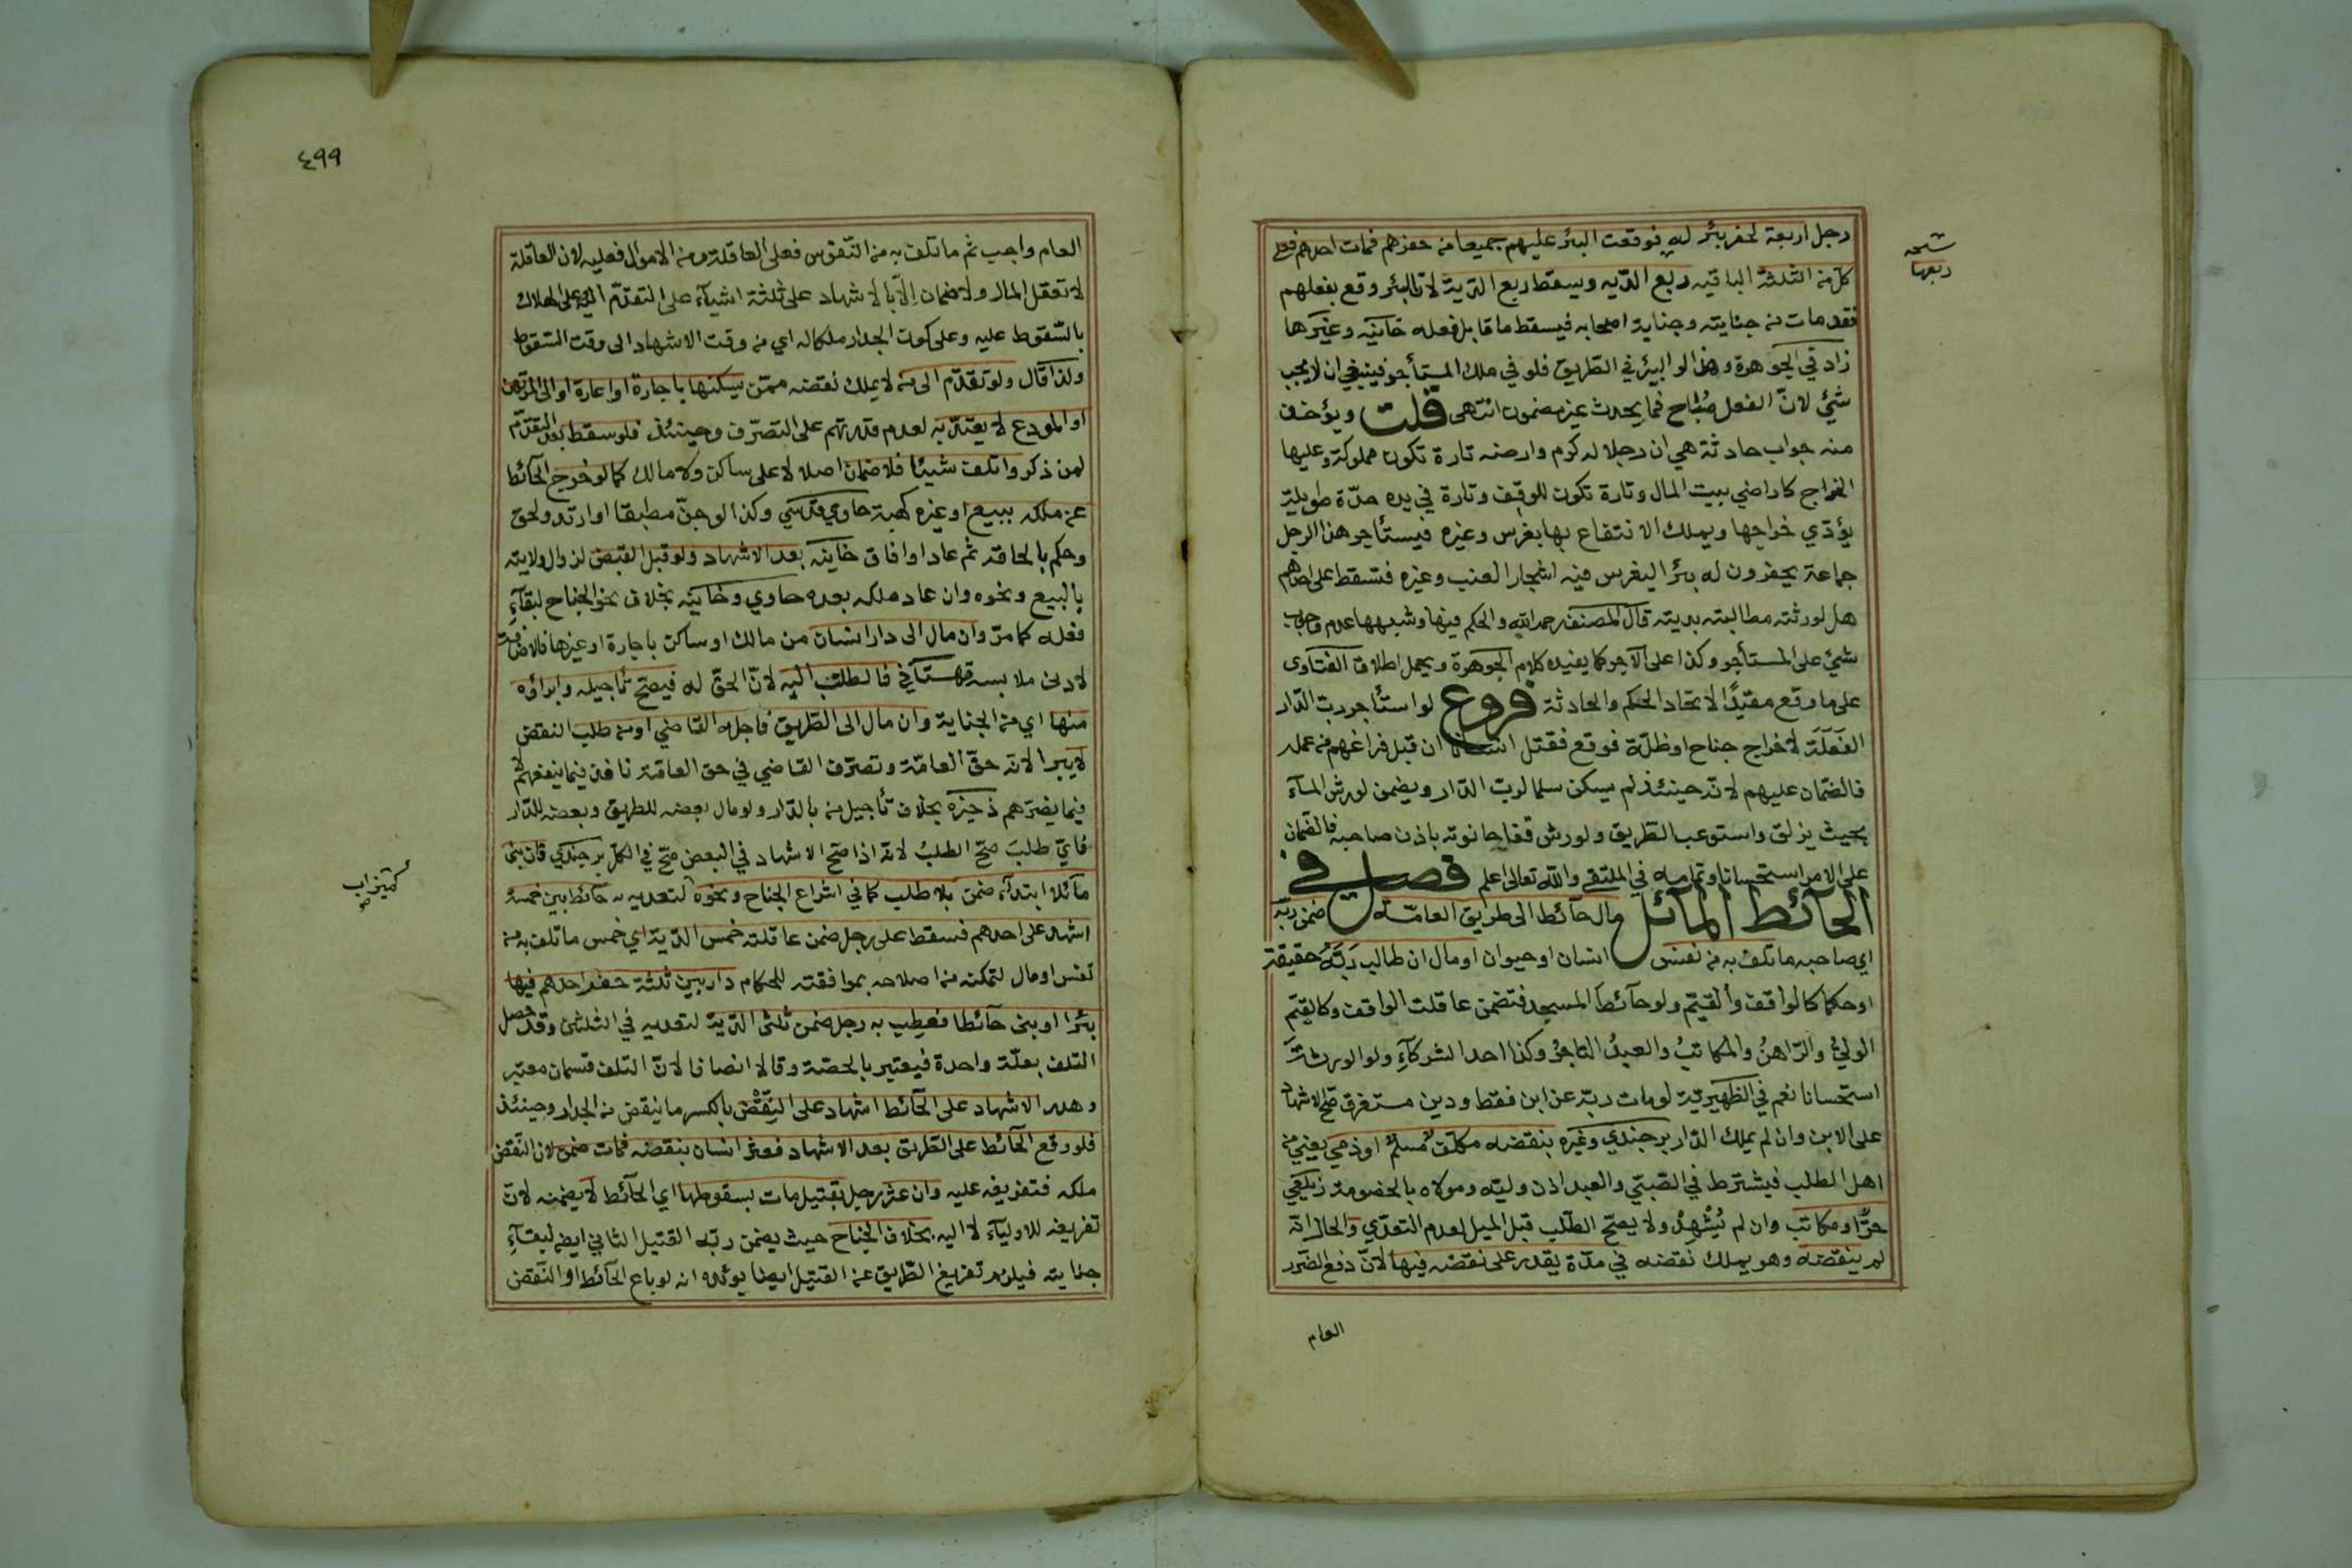 رجل اربعة لحفر بئر له فوقعت البئر عليهم جميعا من حفرهم فمات احدهم فعلى
كل من الثلثة الباقيه ربع الديه ويسقط ربع الدية لان البئر وقع بفعلهم
فقد مات من جنايته وجناية اصحابه فيسقط ما قابل فعله خانيه وغيرها
زاد في الجوهرة وهذا لو البئر في الطريق فلو في ملك المستأجر فينبغي ان لا يجب
شئ لان الفعل مباح فما يحدث غير مضمون انتهى قلت ويؤخذ
منه جواب حادثة هي ان رجلا له كرم وارضه تارة تكون مملوكة وعليها
الخراج كاراضي بيت المال وتارة تكون للوقف وتارة في يده مدة طويلة
يؤدي خراجها ويملك الانتفاع بها بغرس وغيره فيستأجر هذا الرجل
جماعة يحفرون له بئرا ليغرس فيه اشجار العنب وغيره فتسقط على احدهم
هل لورثته مطالبته بديته قال المصنف رحمه الله والحكم فيها وشبهها عدم وجوب
شئ على المستأجر وكذا على الآجر كما يفيده كلام الجوهرة ويحمل اطلاق الفتاوى
على ما وقع مقيدا لاتحاد الحكم والحادثة فروع لو استأجر رب الدار
الفعلة لاخراج جناح او ظلة فوقع فقتل انسانا ان قبل فراغهم من عمله
فالضمان عليهم لانه حينئذ لم يكن سلما لرب الدار ويضمن لو رش المآء
بحيث يزلق واستوعب الطريق ولو رش قفا حانوته باذن صاحبه فالضمان
على الامر استحسانا وتمامه في الملتقى والله تعالى اعلم فصل في
الحآئط المآئل مال حآئط الى طريق العامة ضمن ربه
اي صاحبه ما تلف به من نفس انسان او حيوان او مال ان طالب ربه حقيقة
او حكما كالواقف والقيم ولو حآئط المسجد فتضمن عاقلت الواقف وكالقيم
الولي والراهن والمكاتب والعبد التاجر وكذا احد الشركآء ولو الورثة
استحسانا نعم في الظهيرية لو مات ربه عن ابن فقط ودين مستغرق صح الاشهاد
على الابن وان لم يملك الدار برجندي وغيره بنقضه مكلف مسلم او ذمي يعني من
اهل الطلب فيشترط في الصبي والعبد اذن وليه ومولاه بالخصومة زيلعي
حر او مكاتب وان لم يشهد ولا يصح الطلب قبل الميل لعدم التعدي والحال انه
لم ينقضه وهو يملك نقضه في مدة يقدر على نقضه فيها لان دفع الضرر
العام
ربعها
٤٩٩
العام واجب ثم ما تلف به من النفوس فعلى العاقلة ومن الاموال فعليه لان العاقلة
لا تعقل المال ولا ضمان الا بالاشهاد على ثلثة اشيآء على التقدم اليه وعلى الهلاك
بالسقوط عليه وعلى كون الجدار ملكا له اي من وقت الاشهاد الى وقت السقوط
ولذا قال ولو تقدم الى من لا يملك نقضه ممن يسكنها باجارة او اعارة او الى المرتهن
او المودع لا يعتد به لعدم قدرتهم على التصرف وحينئذ فلو سقط بعد التقدم
لمن ذكر واتلف شيئا فلا ضمان اصلا لا على ساكن ولا مالك كما لو خرج الحآئط
عن ملكه ببيع او غيره كهبة حاوي قدسي وكذا لو جن مطبقا او ارتد ولحق
وحكم بالحاقه ثم عاد او افاق خانيه بعد الاشهاد ولو قبل القبض لزوال ولايته
بالبيع ونحوه وان عاد ملكه بعده حاوي وخانيه بخلاف نحو الجناح لبقآء
فعله كما مر وان مال الى دار انسان من مالك او ساكن باجارة او غيرها
لادنى ملابسة قهستاني فالطلب اليه لان الحق له فيصح تأجيله وابراؤه
منها اي من الجناية وان مال الى الطريق فاجله القاضي او من طلب النقض
لا يبرا لانه حق العامة وتصرف القاضي في حق العامة نافذ فيما ينفعهم لا
فيما يضرهم ذخيره بخلاف تأجيل من بالدار ولو مال بعضه للطريق وبعضه للدار
فاي طلب صح الطلب لانه اذا صح الاشهاد في البعض صح في الكل برجندي فان بنى
مآئلا ابتدآء ضمن بلا طلب كما في اشراع الجناح ونحوه لتعديه به حآئط بين خمسة
اشهد على احدهم فسقط على رجل ضمن عاقلته خمس الدية اي خمس ما تلف به من
نفس او مال لتمكنه من اصلاحه بموافقته للحكام دار بين ثلثة حفر احدهم فيها
بئرا او بنى حآئطا فعطب به رجل ضمن ثلثى الدية لتعديه في الثلثين وقد حصل
التلف بعلة واحدة فيعتبر بالحصة وقالا انصافا لان التلف قسمان معتبر
وهدر الاشهاد على الحآئط اشهاد على النقض بالكسر ما ينقض من الجدار وحينئذ
فلو وقع الحآئط على الطريق بعد الاشهاد فعثر انسان بنقضه فمات ضمن لان النقض
ملكه فتفريغه عليه وان عثر رجل بقتيل مات بسقوطها اي الحآئط لا يضمنه لان
تفريغه للاوليآء لا اليه بخلاف الجناح حيث يضمن ربه القتيل الثاني ايض لبقآء
جنايته فيلزمه تفريغ الطريق عن القتيل ايضا يؤيده انه لو باع الحآئط او النقض
كميزاب